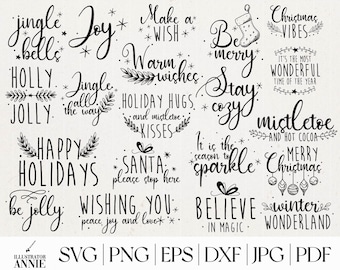 jingle
bells
Joy
Make a
WISH
Be
merry
Christmas
VIBES
HOLLY
JOLLY
Jingle
all the way
Warm
wishes
HOLIDAY HUGS
and mistletoe
KISSES
Stay
cozy
IT'S THE MOST
WONDERFUL
TIME OF THE YEAR
mistletoe
AND HOT COCOA
HAPPY
HOLIDAYS
SANTA
please stop here
It is the
season to
sparkle
MERRY
Christmas
be jolly
WISHING YOU
peace joy and love
BELIEVE
IN MAGIC
winter
WONDERLAND
ILLUSTRATOR
ANNIE
SVG | PNG | EPS | DXF | JPG | PDF